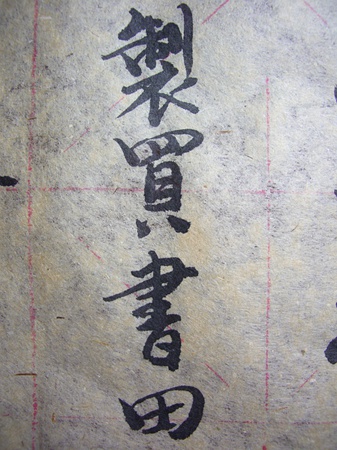 製買書田